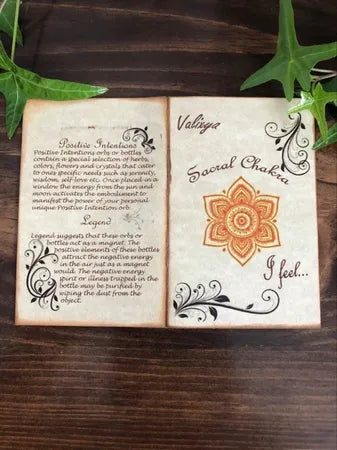 Positive Intentions
Positive Intentions orbs or bottles
contain a special selection of herbs,
colors, flowers and crystals that cater
to ones specific needs such as serenity,
wisdom, self-love etc. Once placed in a
window the energy from the sun and
moon activates the embodiment to
manifest the power of your personal
unique Positive Intention orb.
Legend
Legend suggests that these orbs or
bottles act as a magnet. The
positive elements of these bottles
attract the negative energy
in the air just as a magnet
would. The negative energy
spirit or illness trapped in the
bottle may be purified by
wiping the dust from the
object.
Sacral Chakra
I feel...